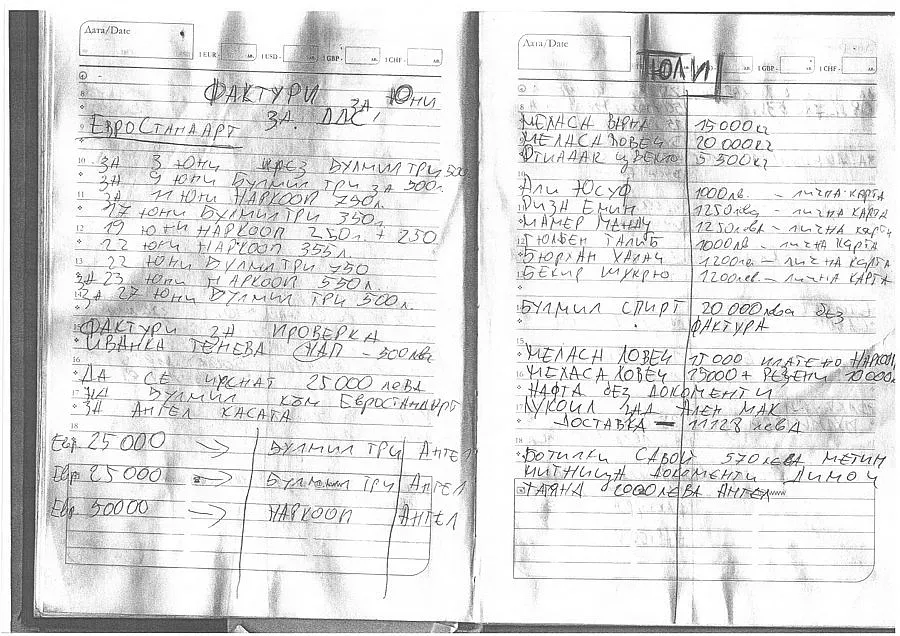 Дата/Date
1 EUR - лв. 1 USD - лв. 1 GBP - лв. 1 CHF - лв.
ФАКТУРИ ЗА ЮНИ
ЗА ДДС,
ЕВРОСТАНДАРТ
ЗА 3 ЮНИ ЧРЕЗ БУЛМИЛ ТРИ 500
ЗА 9 ЮНИ БУЛМИЛ ТРИ ЗА 500л.
ЗА 11 ЮНИ НАРКООП 750л.
17 ЮНИ БУЛМИЛ ТРИ 350л.
19 ЮНИ НАРКООП 250л. + 250
22 ЮНИ НАРКООП 355л.
22 ЮНИ БУЛМИЛ ТРИ 750
ЗА 23 ЮНИ НАРКООП 550л.
ЗА 27 ЮНИ БУЛМИЛ ТРИ 500л.
ФАКТУРИ ЗА ПРОВЕРКА
ИВАНКА ТЕНЕВА НАП - 500лв
ДА СЕ ПУСНАТ 25000 ЛЕВА
БУЛМИЛ КЪМ ЕВРОСТАНДАРТ
ЗА АНГЕЛ КАСАТА
Евр 25000 → БУЛМИЛ ТРИ АНГЕЛ
Евр 25000 → БУЛМИЛ ТРИ АНГЕЛ
Евр 50000 → НАРКООП АНГЕЛ
Дата/Date
ЮЛИ
лв. 1 GBP - лв. 1 CHF - лв.
МЕЛАСА ВАРНА 15000кг
МЕЛАСА ЛОВЕЧ 20000кг
ЦВЕКЛО 5500кг
АЛИ ЮСУФ 1000лв. - ЛИЧНА КАРТА
РИЗА ЕМИН 1250лва - ЛИЧНА КАРТА
МАМЕР 1250лва - ЛИЧНА КАРТА
ГЮЛБЕН ТАЛИБ 1000лв - ЛИЧНА КАРТА
БЮРХАН ХАЛАЧ 1200лв - ЛИЧНА КАРТА
БЕКИР ШУКРЮ 1200лев. - ЛИЧНА КАРТА
БУЛМИЛ СПИРТ 20000лева без
ФАКТУРА
МЕЛАСА ЛОВЕЧ 15000 ПЛАТЕНО НАРКООП
МЕЛАСА ЛОВЕЧ 15000 + РЕЗЕНИ 10000
НАФТА БЕЗ ДОКУМЕНТИ
ЛУКОИЛ ЗАД АЛЕН МАК
ДОСТАВКА - 11128 ЛЕВА
БОТИЛКИ САВОЙ 570 ЛЕВА МЕТИН
МИТНИЦА ДОКУМЕНТИ ДИМОЧ
ЛЕВА АНГЕЛ